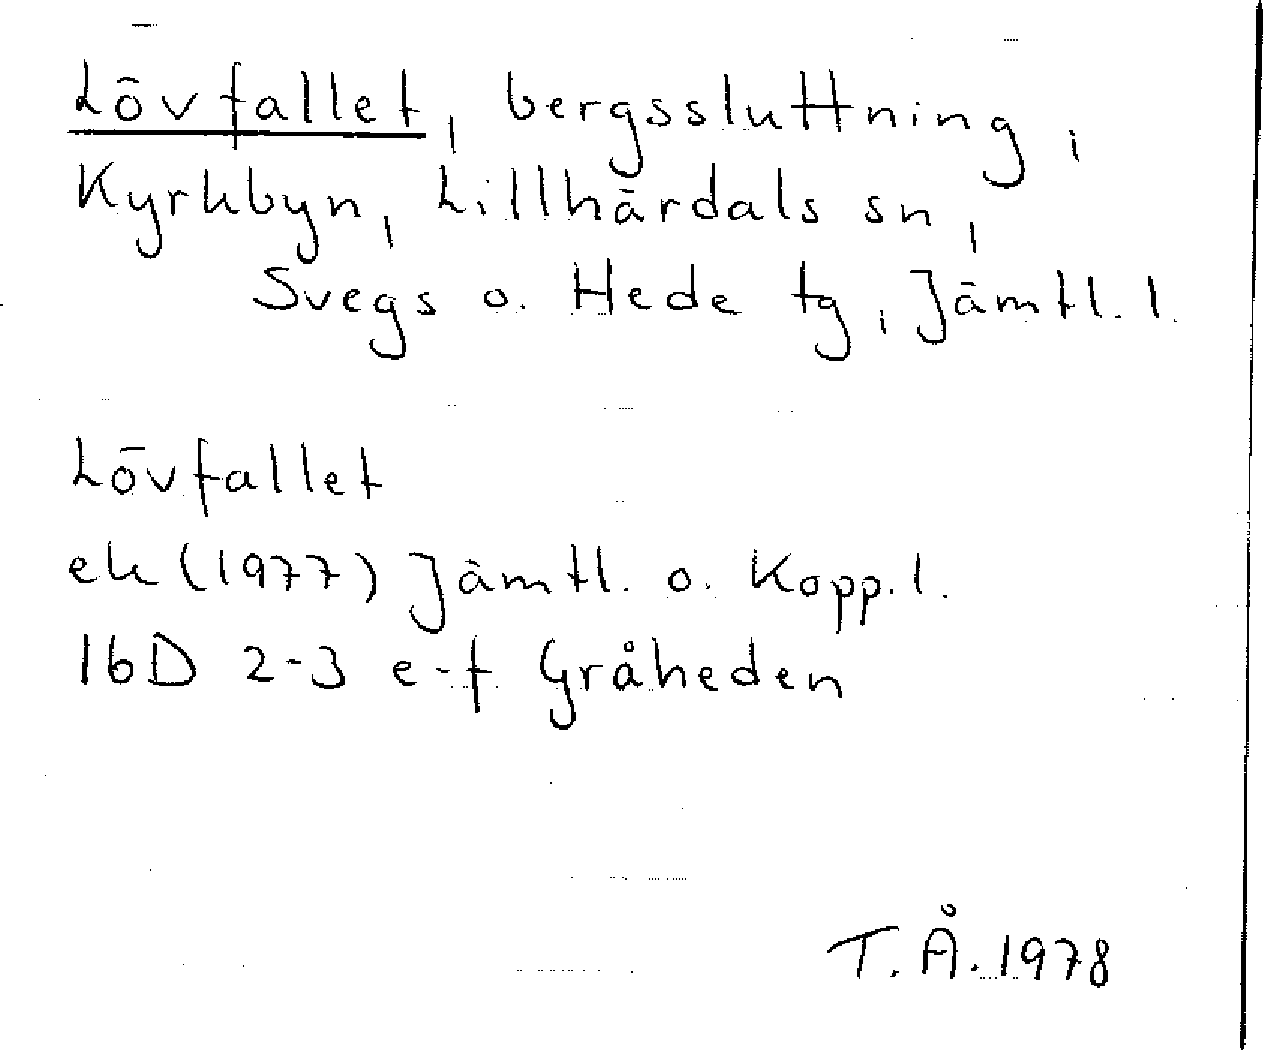 Lövfallet, bergssluttning,
Kyrkbyn, Lillhärdals sn,
Svegs o. Hede tg, Jämtl. l.
Lövfallet
ek (1977) Jämtl. o. Kopp. l.
16D 2-3 e-f Gråheden
T. Å. 1978